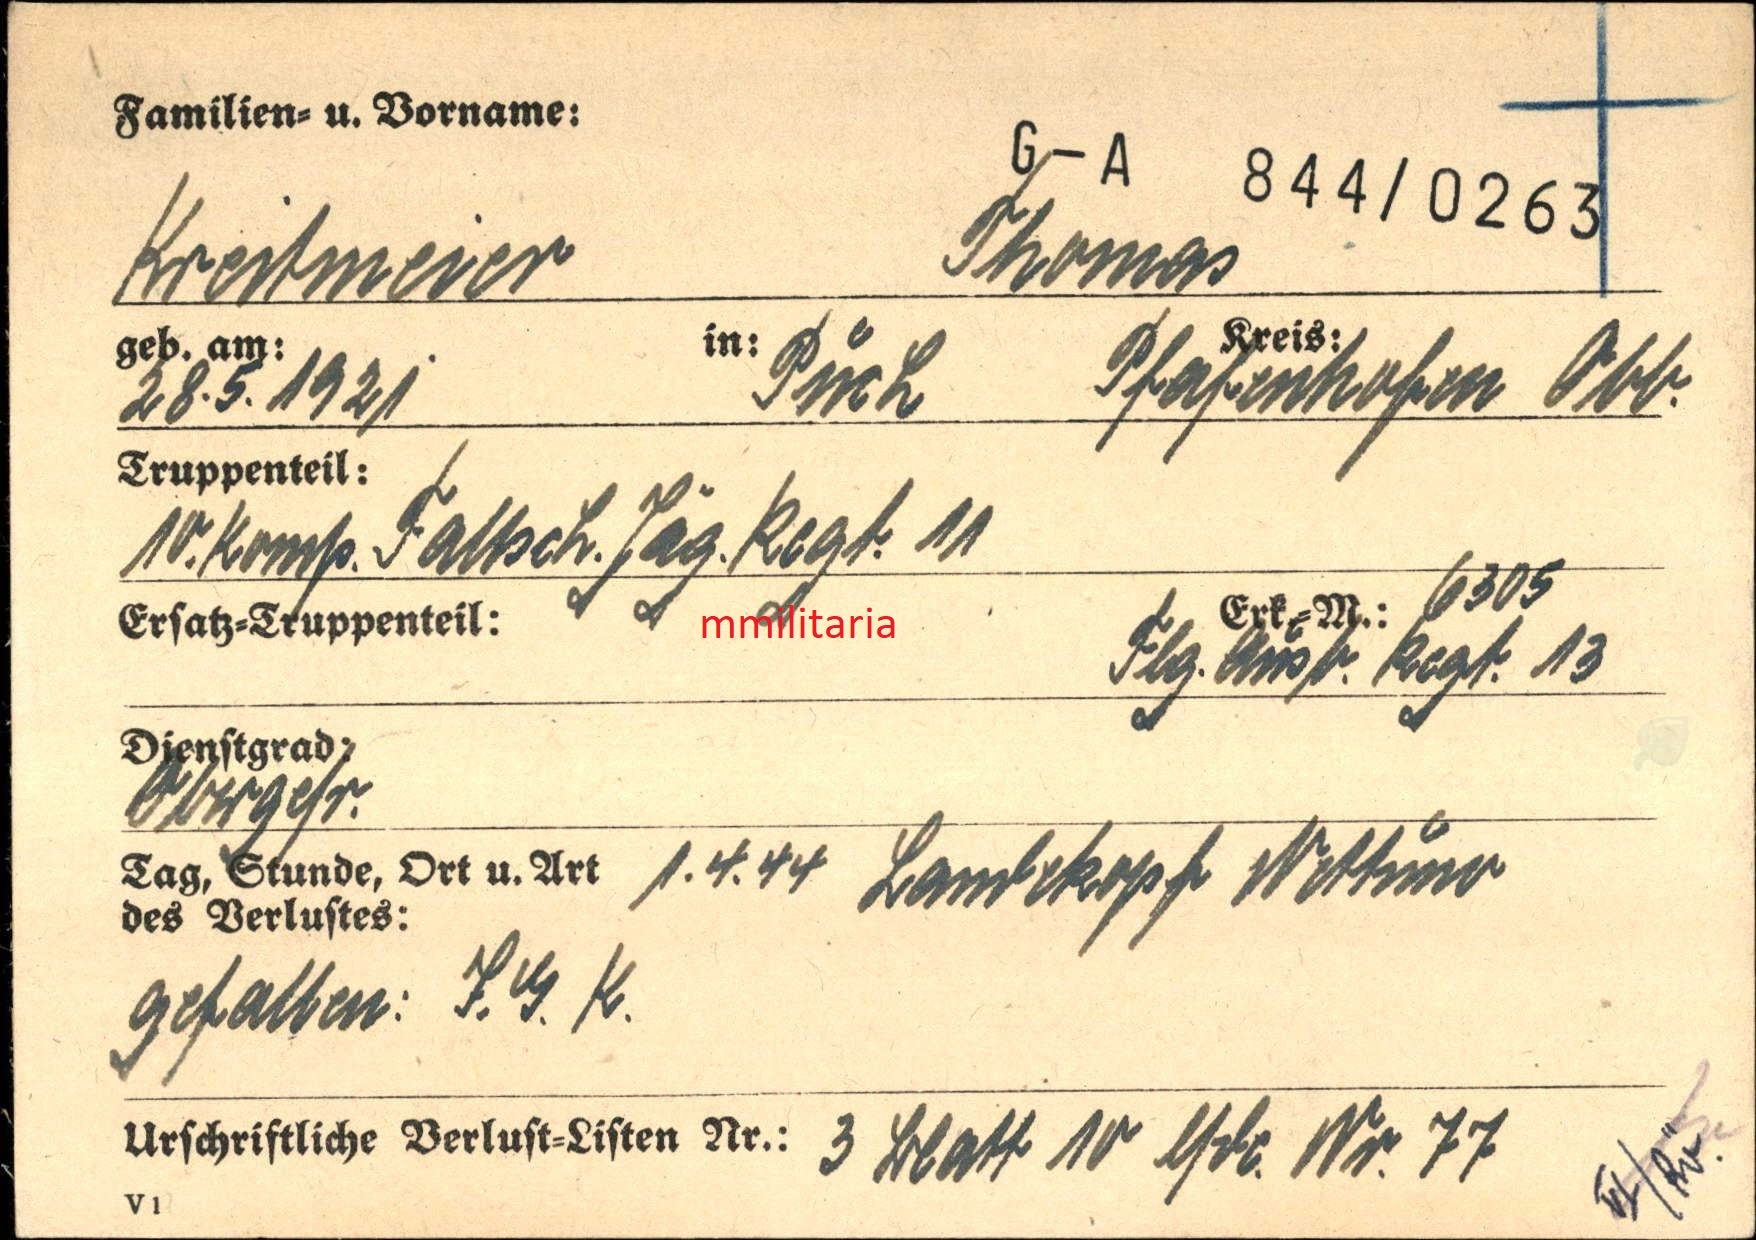 Familien- u. Vorname:
G-A 844/0263
Kreitmeier Thomas
geb. am: in: Kreis:
28.5.1921 Puch Pfafenhofen Obb.
Truppenteil:
10. Komp. Fallsch. Jäg. Regt. 11
Ersatz-Truppenteil: Erk.-M.: 6305
mmilitaria
Flg. Ausb. Regt. 13
Dienstgrad:
Obergefr.
Tag, Stunde, Ort u. Art 1.4.44 Landekopf Nettuno
des Verlustes:
gefallen: I.G. K.
Urschriftliche Verlust-Listen Nr.: 3 Blatt 10 lfde. Nr. 77
V 1